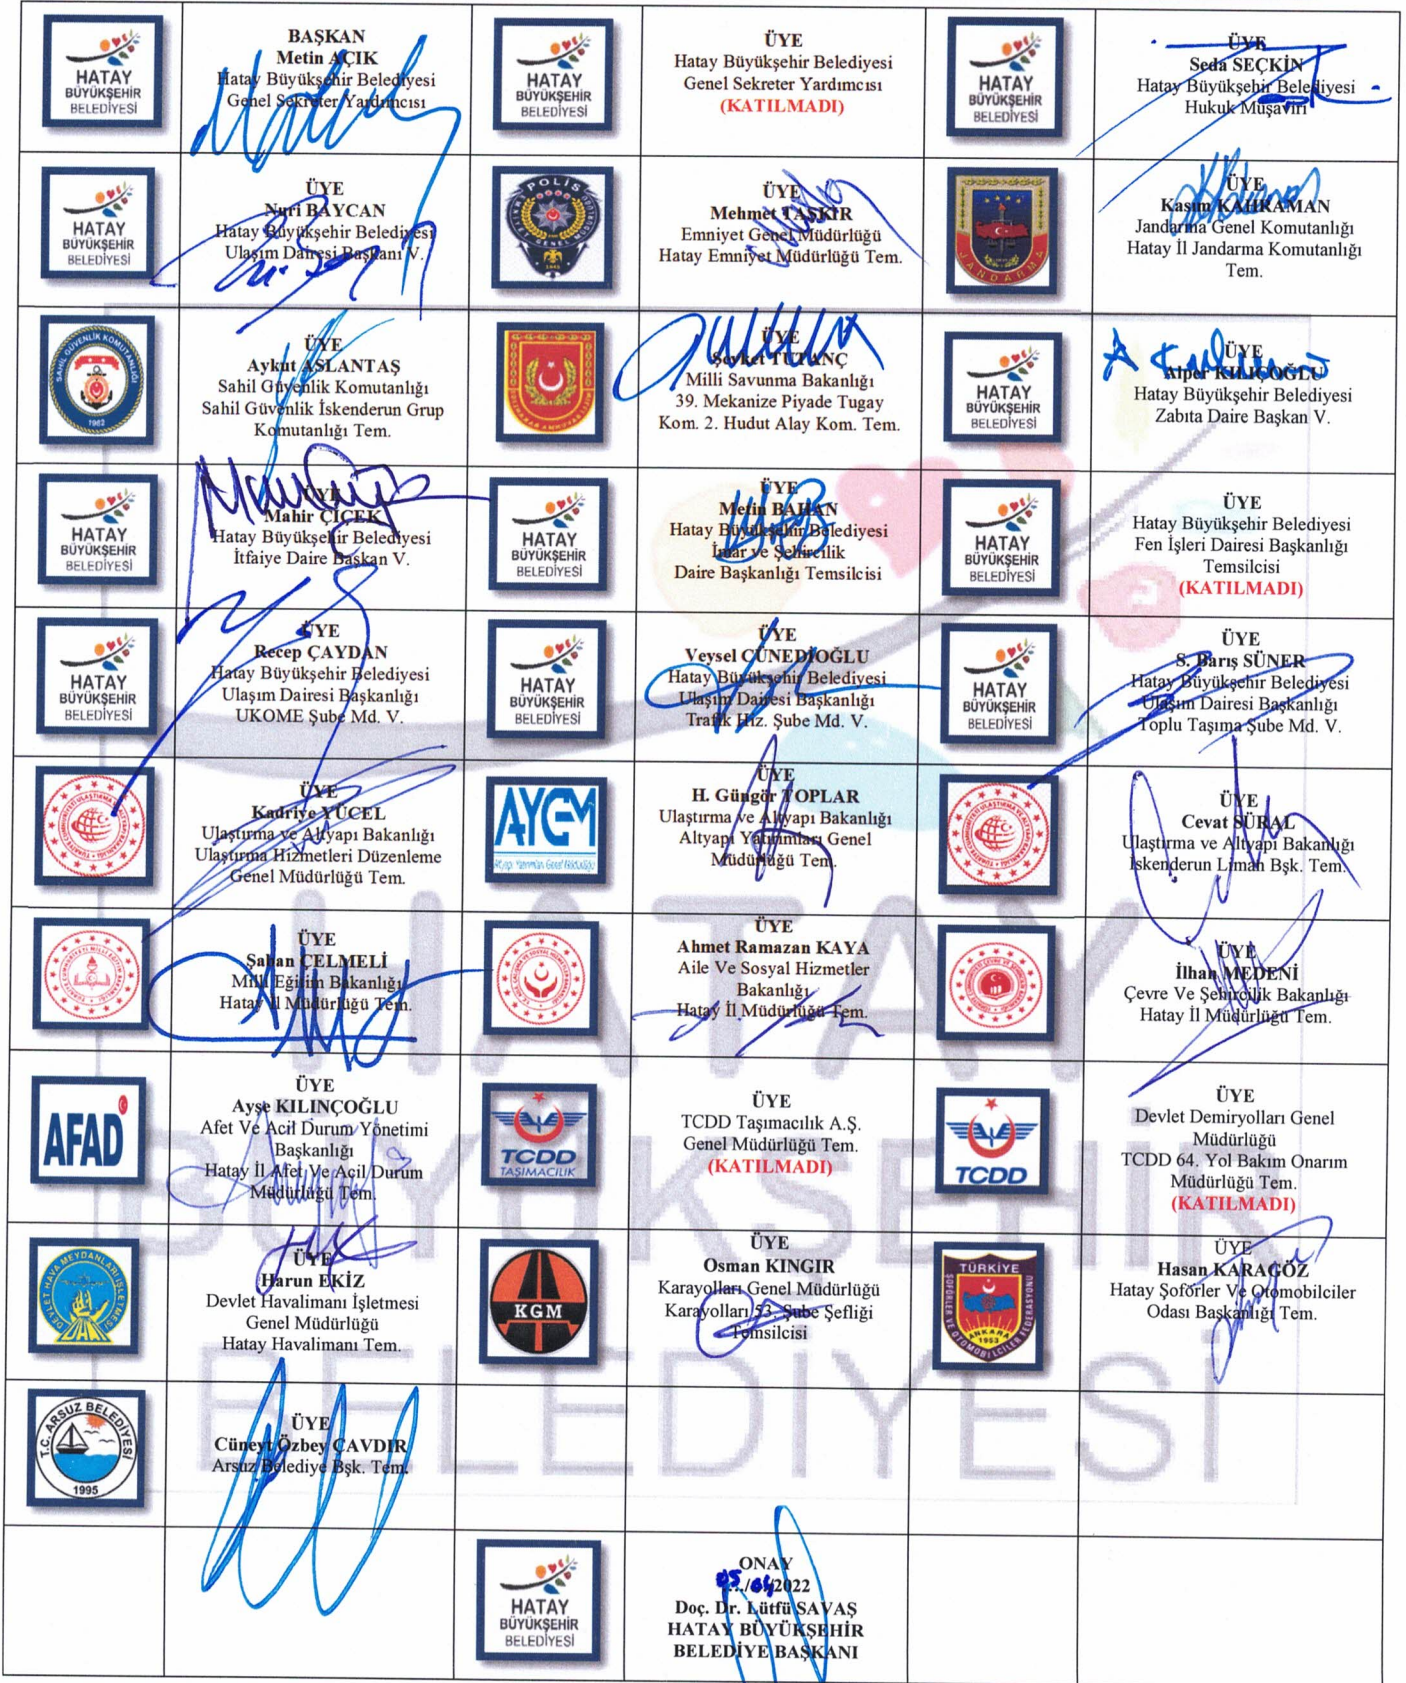 HATAY
BÜYÜKŞEHİR
BELEDİYESİ
BAŞKAN
Metin AÇIK
Hatay Büyükşehir Belediyesi
Genel Sekreter Yardımcısı
HATAY
BÜYÜKŞEHİR
BELEDİYESİ
ÜYE
Hatay Büyükşehir Belediyesi
Genel Sekreter Yardımcısı
(KATILMADI)
HATAY
BÜYÜKŞEHİR
BELEDİYESİ
ÜYE
Seda SEÇKİN
Hatay Büyükşehir Belediyesi
Hukuk Müşaviri
HATAY
BÜYÜKŞEHİR
BELEDİYESİ
ÜYE
Nuri BAYCAN
Hatay Büyükşehir Belediyesi
Ulaşım Dairesi Başkanı V.
POLİS
ÜYE
Mehmet TAŞKIR
Emniyet Genel Müdürlüğü
Hatay Emniyet Müdürlüğü Tem.
JANDARMA
ÜYE
Kasım KAHRAMAN
Jandarma Genel Komutanlığı
Hatay İl Jandarma Komutanlığı
Tem.
SAHİL GÜVENLİK KOMUTANLIĞI
1982
ÜYE
Aykut ASLANTAŞ
Sahil Güvenlik Komutanlığı
Sahil Güvenlik İskenderun Grup
Komutanlığı Tem.
ÜYE
Şevket TUTANÇ
Milli Savunma Bakanlığı
39. Mekanize Piyade Tugay
Kom. 2. Hudut Alay Kom. Tem.
HATAY
BÜYÜKŞEHİR
BELEDİYESİ
ÜYE
Alper KILIÇOĞLU
Hatay Büyükşehir Belediyesi
Zabıta Daire Başkan V.
HATAY
BÜYÜKŞEHİR
BELEDİYESİ
ÜYE
Mahir ÇİÇEK
Hatay Büyükşehir Belediyesi
İtfaiye Daire Başkan V.
HATAY
BÜYÜKŞEHİR
BELEDİYESİ
ÜYE
Metin BAHAN
Hatay Büyükşehir Belediyesi
İmar ve Şehircilik
Daire Başkanlığı Temsilcisi
HATAY
BÜYÜKŞEHİR
BELEDİYESİ
ÜYE
Hatay Büyükşehir Belediyesi
Fen İşleri Dairesi Başkanlığı
Temsilcisi
(KATILMADI)
HATAY
BÜYÜKŞEHİR
BELEDİYESİ
ÜYE
Recep ÇAYDAN
Hatay Büyükşehir Belediyesi
Ulaşım Dairesi Başkanlığı
UKOME Şube Md. V.
HATAY
BÜYÜKŞEHİR
BELEDİYESİ
ÜYE
Veysel CÜNEDİOĞLU
Hatay Büyükşehir Belediyesi
Ulaşım Dairesi Başkanlığı
Trafik Hız. Şube Md. V.
HATAY
BÜYÜKŞEHİR
BELEDİYESİ
ÜYE
S. Barış SÜNER
Hatay Büyükşehir Belediyesi
Ulaşım Dairesi Başkanlığı
Toplu Taşıma Şube Md. V.
ÜYE
Kadriye YÜCEL
Ulaştırma ve Altyapı Bakanlığı
Ulaştırma Hizmetleri Düzenleme
Genel Müdürlüğü Tem.
AYGM
Altyapı Yatırımları Genel Müdürlüğü
ÜYE
H. Güngör TOPLAR
Ulaştırma ve Altyapı Bakanlığı
Altyapı Yatırımları Genel
Müdürlüğü Tem.
ÜYE
Cevat SÜRAL
Ulaştırma ve Altyapı Bakanlığı
İskenderun Liman Bşk. Tem.
ÜYE
Şaban ÇELMELİ
Milli Eğitim Bakanlığı
Hatay İl Müdürlüğü Tem.
ÜYE
Ahmet Ramazan KAYA
Aile Ve Sosyal Hizmetler
Bakanlığı
Hatay İl Müdürlüğü Tem.
ÜYE
İlhan MEDENİ
Çevre Ve Şehircilik Bakanlığı
Hatay İl Müdürlüğü Tem.
AFAD
ÜYE
Ayşe KILINÇOĞLU
Afet Ve Acil Durum Yönetimi
Başkanlığı
Hatay İl Afet Ve Acil Durum
Müdürlüğü Tem.
TCDD
TAŞIMACILIK
ÜYE
TCDD Taşımacılık A.Ş.
Genel Müdürlüğü Tem.
(KATILMADI)
TCDD
ÜYE
Devlet Demiryolları Genel
Müdürlüğü
TCDD 64. Yol Bakım Onarım
Müdürlüğü Tem.
(KATILMADI)
DEVLET HAVA MEYDANLARI İŞLETMESİ
ÜYE
Harun EKİZ
Devlet Havalimanı İşletmesi
Genel Müdürlüğü
Hatay Havalimanı Tem.
KGM
ÜYE
Osman KINGIR
Karayolları Genel Müdürlüğü
Karayolları 53. Şube Şefliği
Temsilcisi
TÜRKİYE
ŞOFÖRLER VE OTOMOBİLCİLER FEDERASYONU
ANKARA
1953
ÜYE
Hasan KARAGÖZ
Hatay Şoförler Ve Otomobilciler
Odası Başkanlığı Tem.
T.C. ARSUZ BELEDİYESİ
1995
ÜYE
Cüneyt Özbey ÇAVDIR
Arsuz Belediye Bşk. Tem.
HATAY
BÜYÜKŞEHİR
BELEDİYESİ
ONAY
05/04/2022
Doç. Dr. Lütfü SAVAŞ
HATAY BÜYÜKŞEHİR
BELEDİYE BAŞKANI
HATAY
BÜYÜKŞEHİR
BELEDİYESİ